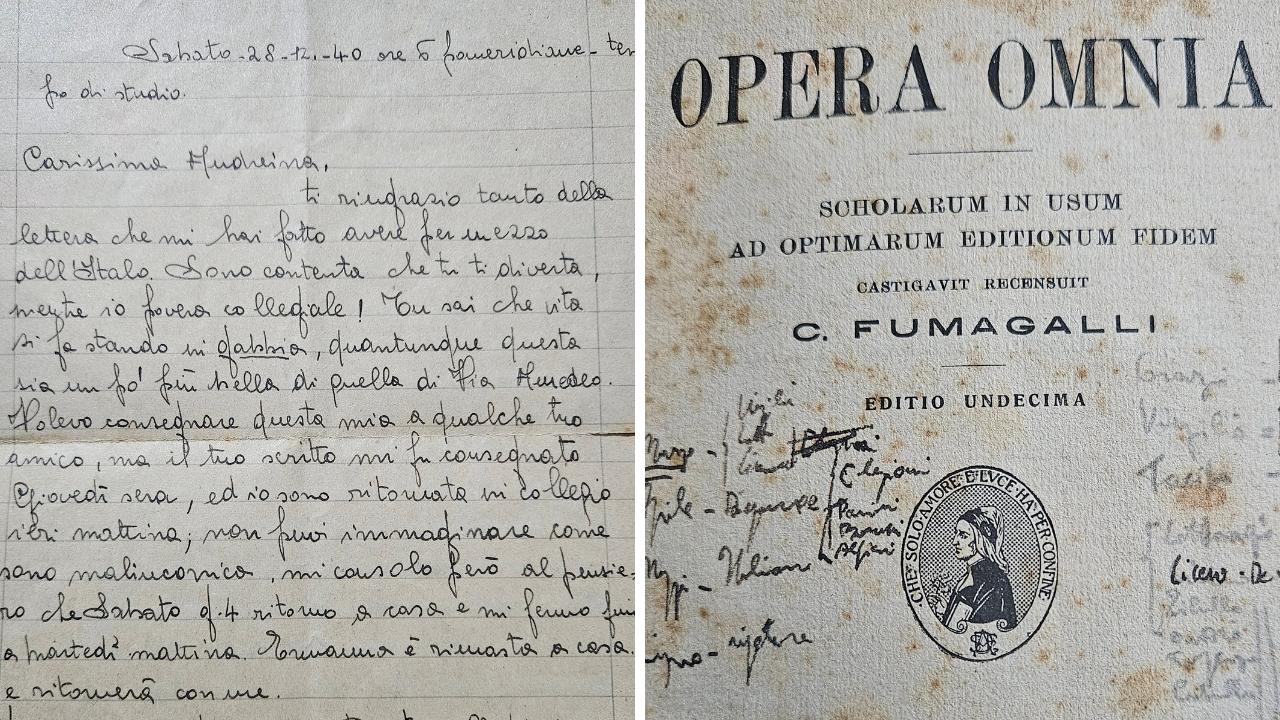 Sabato - 28 - 12. - 40 ore 5 pomeridiane - tem
po di studio.
Carissima Andreina,
ti ringrazio tanto della
lettera che mi hai fatto avere per mezzo
dell'Italo. Sono contenta che tu ti diverta,
mentre io povera collegiale! Tu sai che vita
si fa stando in gabbia, quantunque questa
sia un po' più bella di quella di Via Amedeo.
Volevo consegnare questa mia a qualche tuo
amico, ma il tuo scritto mi fu consegnato
Giovedì sera, ed io sono ritornata in collegio
ieri mattina; non puoi immaginare come
sono malinconica, mi consolo però al pensie-
ro che Sabato g. 4 ritorno a casa e mi fermo fin
a martedì mattina. Ermanna è rimasta a casa.
e ritornerà con me.
OPERA OMNIA
SCHOLARUM IN USUM
AD OPTIMARUM EDITIONUM FIDEM
CASTIGAVIT RECENSUIT
C. FUMAGALLI
EDITIO UNDECIMA
Virgilio =
Tacito -
Parini
Alfieri
Italiano
CHE SOLO AMORE E LVCE HA PER CONFINE
Cicero - De